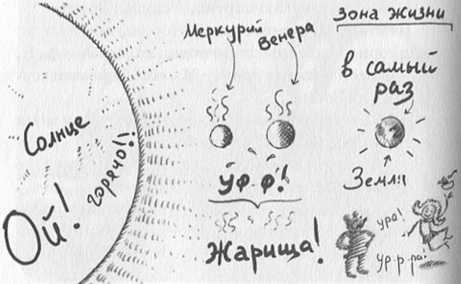 Солнце
Ой!
горячо!!
Меркурий
Венера
Уф-ф!
Жарища!
Зона жизни
в самый
раз
Земля
ура!
ур-р-ра!